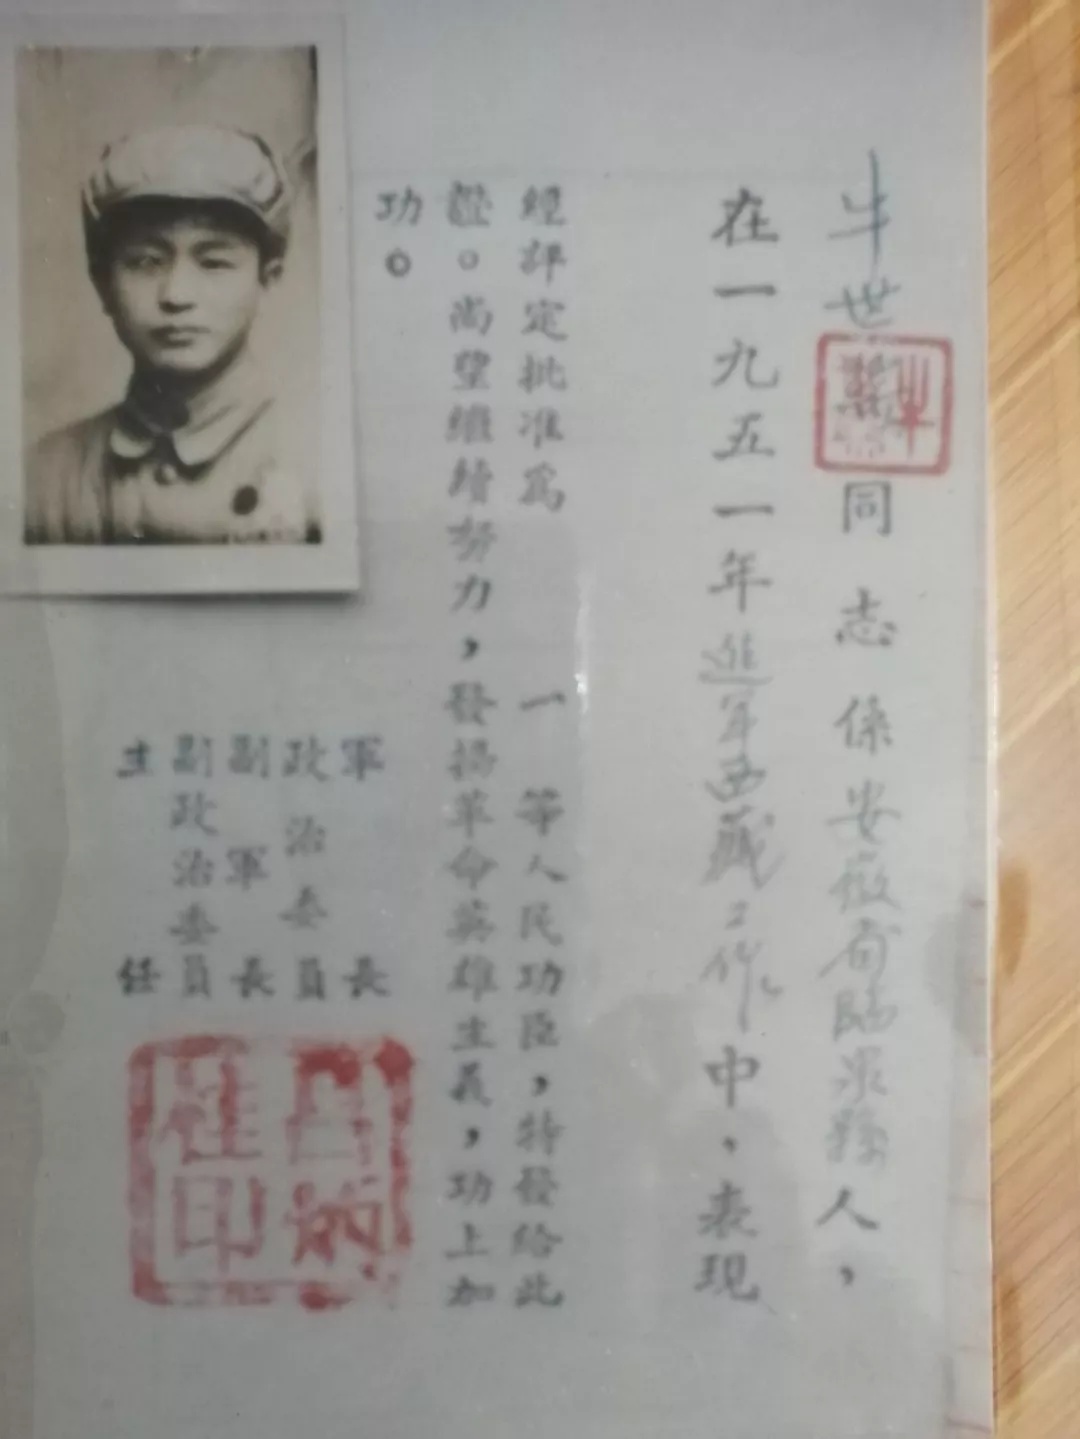 牛世
同志係安徽省臨泉縣人，
在一九五一年進軍西藏工作中，表現
經評定批准爲 一 等人民功臣，特發給此
證。尚望繼續努力，發揚革命英雄主義，功上加
功。
軍長
政治委員
副軍長
副政治委員
主任
印